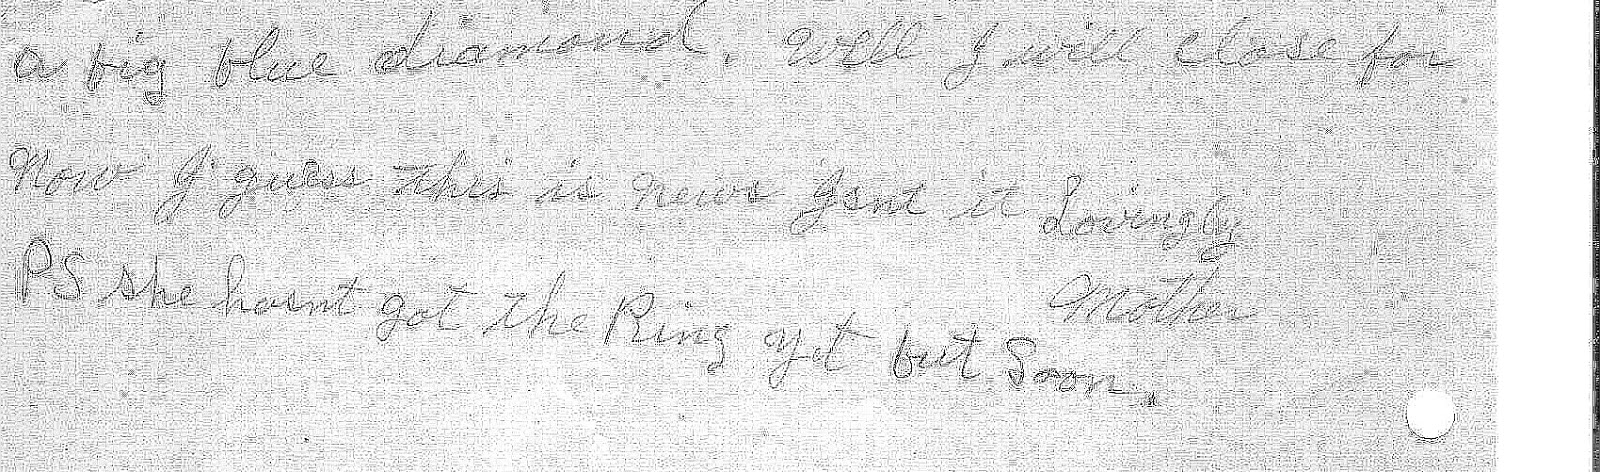 a big blue diamond. Well I will close for
Now I guess this is news Isnt it Lovingly
Mother
PS she hasnt got the Ring yet but Soon.